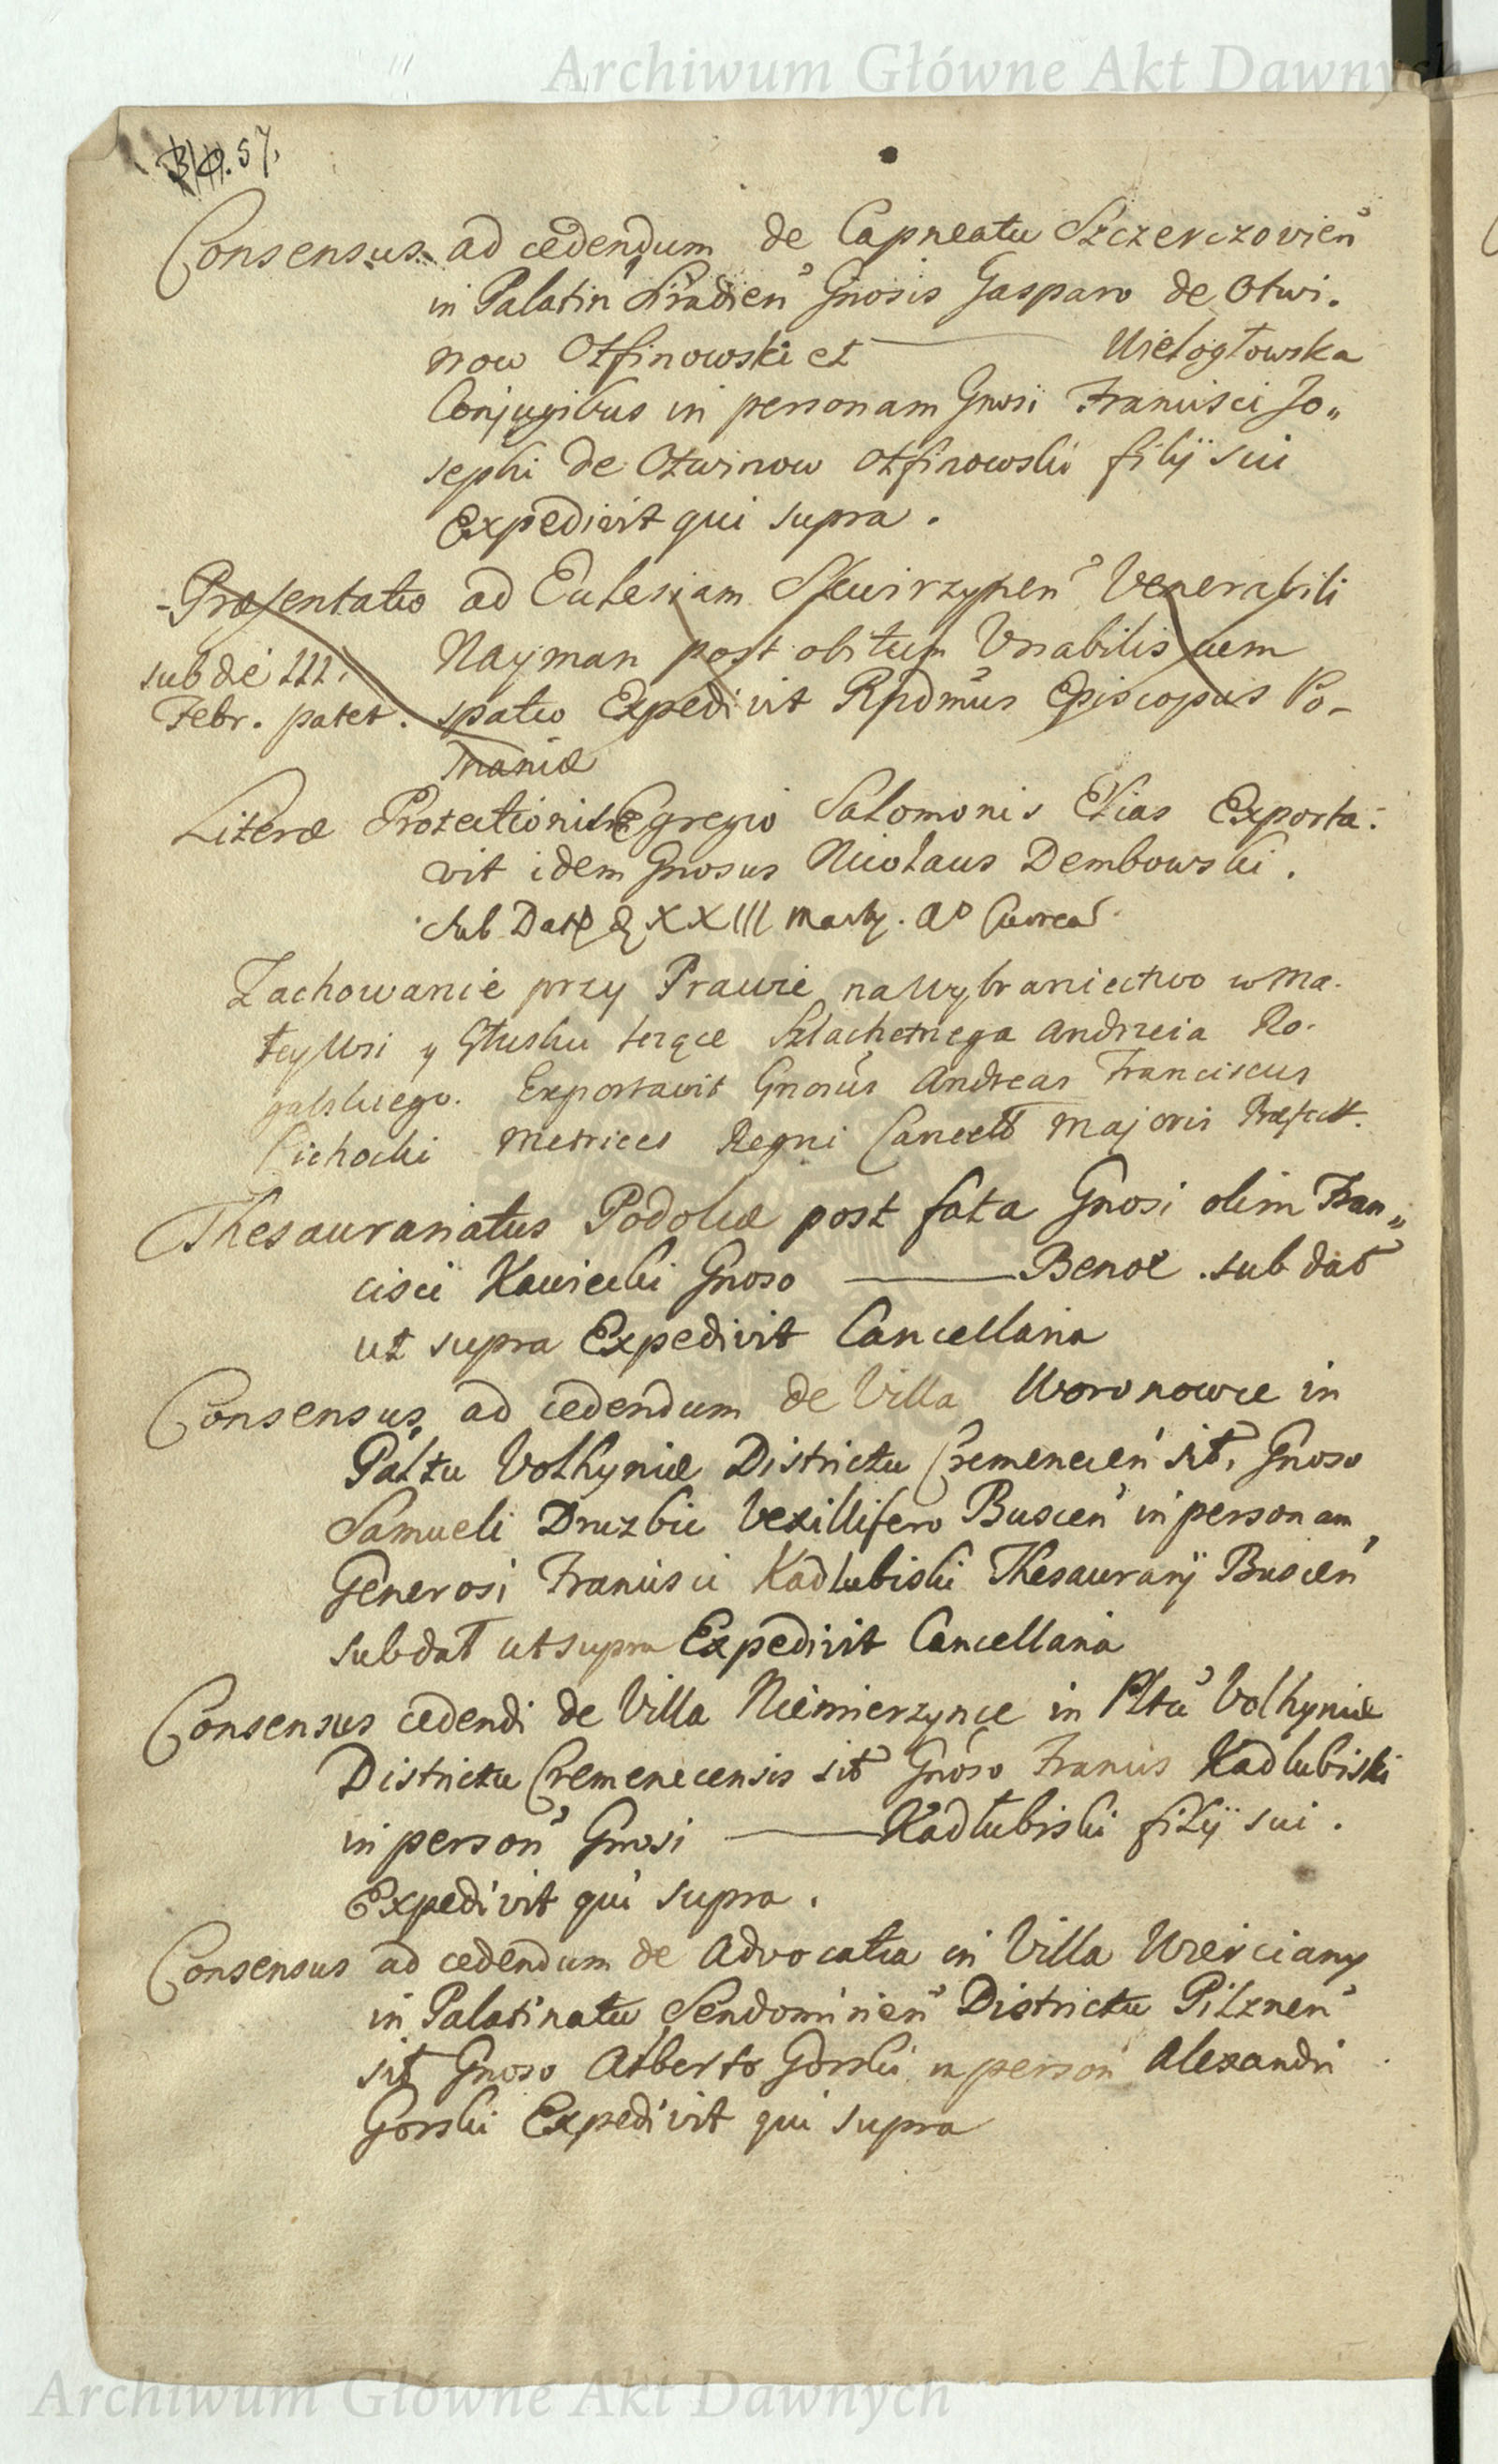 Archiwum Główne Akt Dawnych
57.
Consensus ad cedendum de Capneatu Szczerczovien
in Palatin Siradien Gnosis Gasparo de Otwi.
now Otfinowski et ——— Wielogłowska
Conjugibus in personam Gnosi Francisci Jo„
sephi de Otwinow Otfinowski filij sui
Expedivit qui supra.
Præsentatio ad Eclesiam Skwirzynen Venerabili
Nayman post obitum Vnabilis uem
sub de III.
Febr. patet.
spatio Expedivit Rndmus Episcopus Po-
snaniæ
Literæ Protectionis Egregio Salomonis Elias Exporta-
vit idem Gnosus Nicolaus Dembowski.
Sub Dat d XXIII Martij. A° Currea.
Zachowanie przy Prawie na Wybraniectwo w Ma-
łeyWsi y Głusku lezące Szlachetnego Andrzeia Ro-
galskiego. Exportavit Gnosus Andreas Franciscus
Cichocki Metrices Regni Cancell Majoris Præfect.
Thesaurariatus Podoliæ post fata Gnosi olim Fran„
cisci Kawiecki Gnoso ——— Benoe. sub dat
ut supra Expedivit Cancellaria
Consensus ad cedendum de Villa Woronowce in
Paltu Volhyniæ Districtu Cremenecen sit. Gnoso
Samueli Druzbic Vexillifero Buscen in personam
Generosi Francisci Kadlubiski Thesaurarij Buscen
sub dat ut supra Expedivit Cancellaria
Consensus cedendi de Villa Niemierzynce in Pltu Volhyniæ
Districtu Cremenecensis sit Gnoso Francis Kadlubiski
in person Gnosi ——— Kadłubiski filij sui.
Expedivit qui supra.
Consensus ad cedendum de Advocatia in Villa Wierciany
in Palatinatu Sendomirien Districtu Pilznen
sit Gnoso Alberto Gorski in person Alexandri
Gorski Expedivit qui supra
Archiwum Główne Akt Dawnych